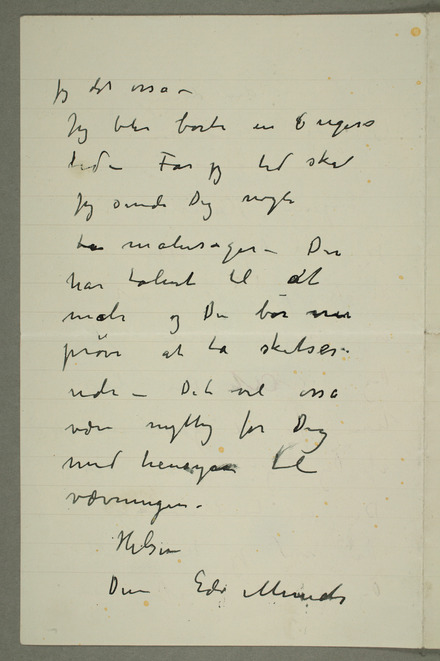 jeg det ossa –
Jeg blir borte en 8 ugers
tid – Faar jeg tid skal
jeg sende Dig nogle
malersager – Du
har talent til at
male og Du bør
prøve at ta skitser
ude – Det vil ossa
være nyttig for Dig
med hensyn til
vævningen –
Hilsen
Din Edv Munch